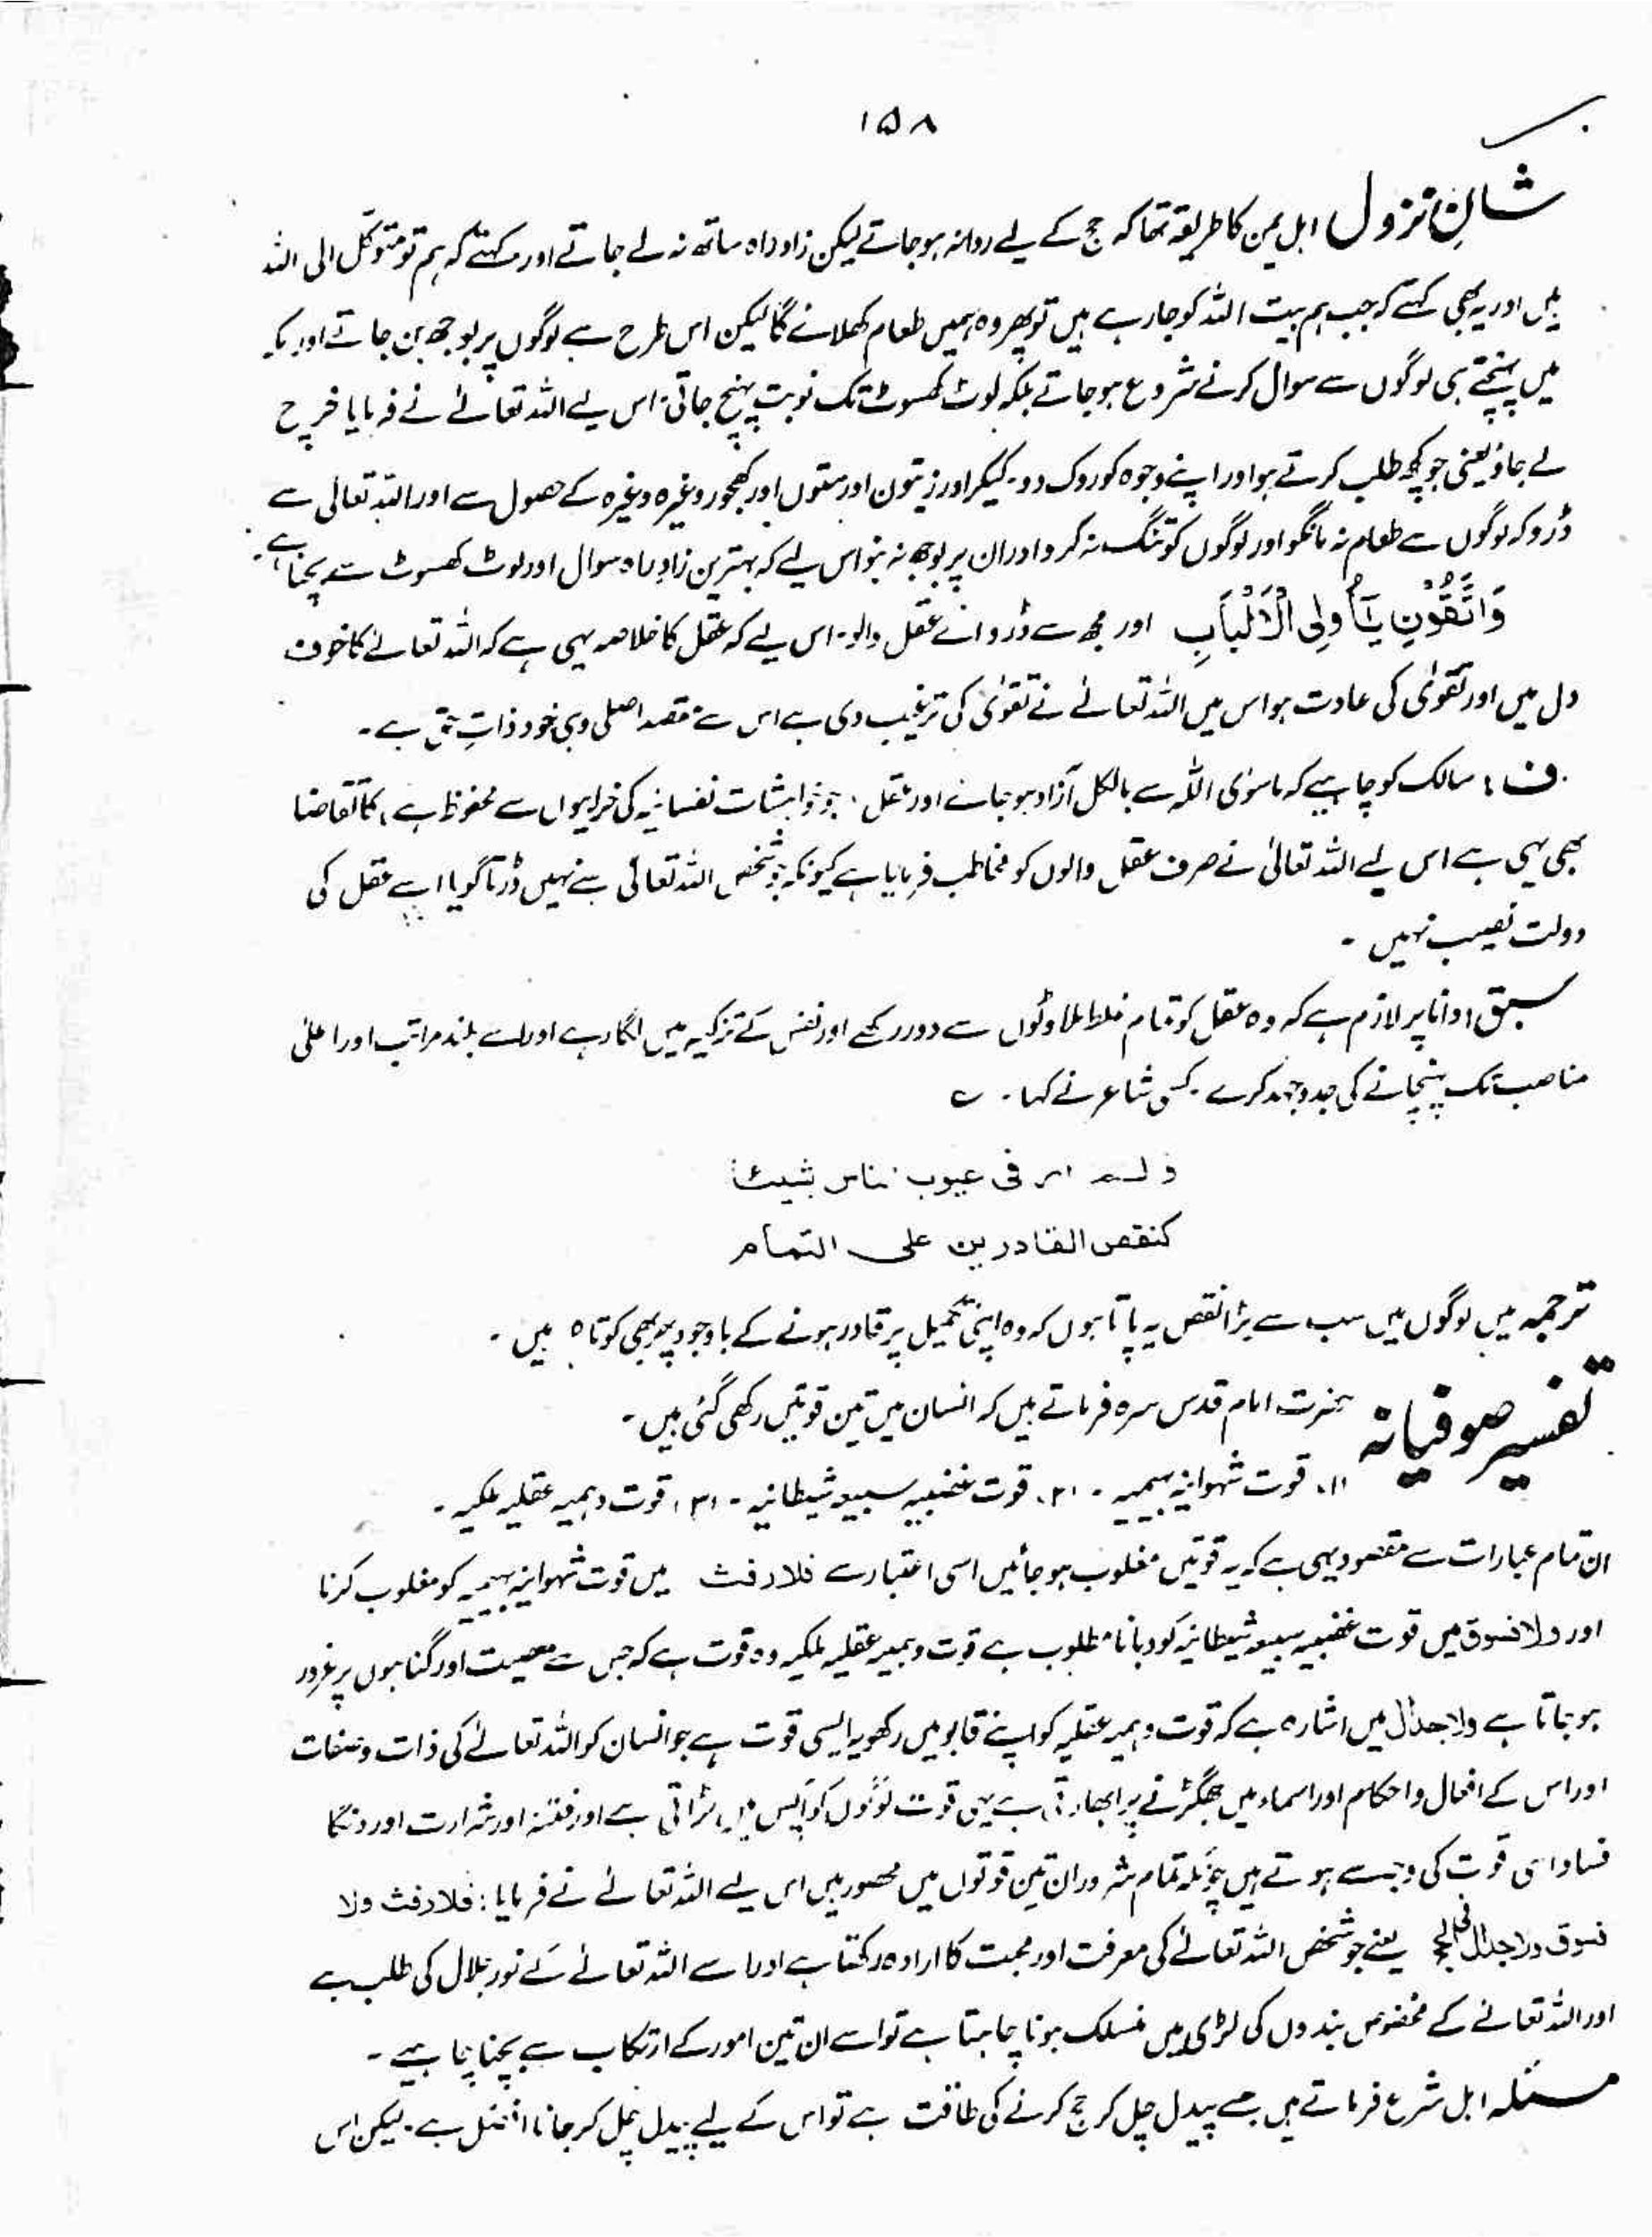 ۱۵۸
شانِ نزول اہل یمن کا طریقہ تھا کہ حج کے لیے روانہ ہو جاتے لیکن زادِ راہ ساتھ نہ لے جاتے اور کہتے کہ ہم تو متوکل الی اللہ
ہیں اور یہ بھی کہتے کہ جب ہم بیت اللہ کو جا رہے ہیں تو پھر وہ ہمیں طعام کھلائے گا لیکن اس طرح سے لوگوں پر بوجھ بن جاتے اور مکہ
میں پہنچتے ہی لوگوں سے سوال کرنے شروع ہو جاتے بلکہ لوٹ کھسوٹ تک نوبت پہنچ جاتی۔ اس لیے اللہ تعالےٰ نے فرمایا خرچ
لے جاؤ یعنی جو کچھ طلب کرتے ہو اور اپنے وجوہ کو روک دو۔ کیک اور زیتون اور ستوں اور کھجور وغیرہ وغیرہ کے حصول سے اور اللہ تعالیٰ سے
ڈرو کہ لوگوں سے طعام نہ مانگو اور لوگوں کو تنگ نہ کرو اور ان پر بوجھ نہ بنو اس لیے کہ بہترین زادِ راہ سوال اور لوٹ کھسوٹ سے بچنا ہے۔
وَاتَّقُوْنِ یٰٓاُولِی الْاَلْبَابِ اور مجھ سے ڈرو اے عقل والو۔ اس لیے کہ عقل کا خلاصہ یہی ہے کہ اللہ تعالےٰ کا خوف
دل میں اور تقویٰ کی عادت ہو اس میں اللہ تعالےٰ نے تقویٰ کی ترغیب دی ہے اس سے مقصد اصلی وہی خود ذاتِ حق ہے۔
ف : سالک کو چاہیے کہ ماسوی اللہ سے بالکل آزاد ہو جائے اور عقل ، جو خواہشات نفسانیہ کی خرابیوں سے محفوظ ہے ، کا تقاضا
بھی یہی ہے اس لیے اللہ تعالیٰ نے صرف عقل والوں کو مخاطب فرمایا ہے کیونکہ جو شخص اللہ تعالیٰ سے نہیں ڈرتا گویا اسے عقل کی
دولت نصیب نہیں ۔
سبق : دانا پر لازم ہے کہ وہ عقل کو تمام غلط ملاوٹوں سے دور رکھے اور نفس کے تزکیہ میں لگا رہے اور اسے بلند مراتب اور اعلیٰ
مناصب تک پہنچانے کی جدوجہد کرے ۔ کسی شاعر نے کہا ۔ ؎
ولم ار فی عیوب الناس شیئا
کنقص القادرین علی التمام
ترجمہ میں لوگوں میں سب سے بڑا نقص یہ پاتا ہوں کہ وہ اپنی تکمیل پر قادر ہونے کے باوجود پھر بھی کوتاہ ہیں ۔
تفسیر صوفیانہ حضرت امام قدس سرہ فرماتے ہیں کہ انسان میں تین قوتیں رکھی گئی ہیں ۔
(۱) قوت شہوانیہ بہیمیہ ۔ (۲) قوت غضبیہ سبعیہ شیطانیہ ۔ (۳) قوت وہمیہ عقلیہ ملکیہ ۔
ان تمام عبارات سے مقصود یہی ہے کہ یہ قوتیں مغلوب ہو جائیں اسی اعتبار سے فلا رفث میں قوت شہوانیہ بہیمیہ کو مغلوب کرنا
اور ولا فسوق میں قوت غضبیہ سبعیہ شیطانیہ کو دبانا مطلوب ہے قوت وہمیہ عقلیہ ملکیہ وہ قوت ہے کہ جس سے معصیت اور گناہوں پر غرور
ہو جاتا ہے ولا جدال میں اشارہ ہے کہ قوت وہمیہ عقلیہ کو اپنے قابو میں رکھو یہ ایسی قوت ہے جو انسان کو اللہ تعالےٰ کی ذات و صفات
اور اس کے افعال و احکام اور اسماء میں جھگڑنے پر ابھارتی ہے یہی قوت لوگوں کو آپس میں لڑاتی ہے اور فتنہ اور شرارت اور دنگا
فساد اسی قوت کی وجہ سے ہوتے ہیں چونکہ تمام شرور ان تین قوتوں میں محصور ہیں اس لیے اللہ تعالےٰ نے فرمایا : فلا رفث ولا
فسوق ولا جدال فی الحج یعنے جو شخص اللہ تعالےٰ کی معرفت اور محبت کا ارادہ رکھتا ہے اور اسے اللہ تعالےٰ کے نور جلال کی طلب ہے
اور اللہ تعالےٰ کے مخصوص بندوں کی لڑی میں منسلک ہونا چاہتا ہے تو اسے ان تین امور کے ارتکاب سے بچنا چاہیے ۔
مسئلہ اہل شرع فرماتے ہیں جسے پیدل چل کر حج کرنے کی طاقت ہے تو اس کے لیے پیدل چل کر جانا افضل ہے ۔ لیکن اس